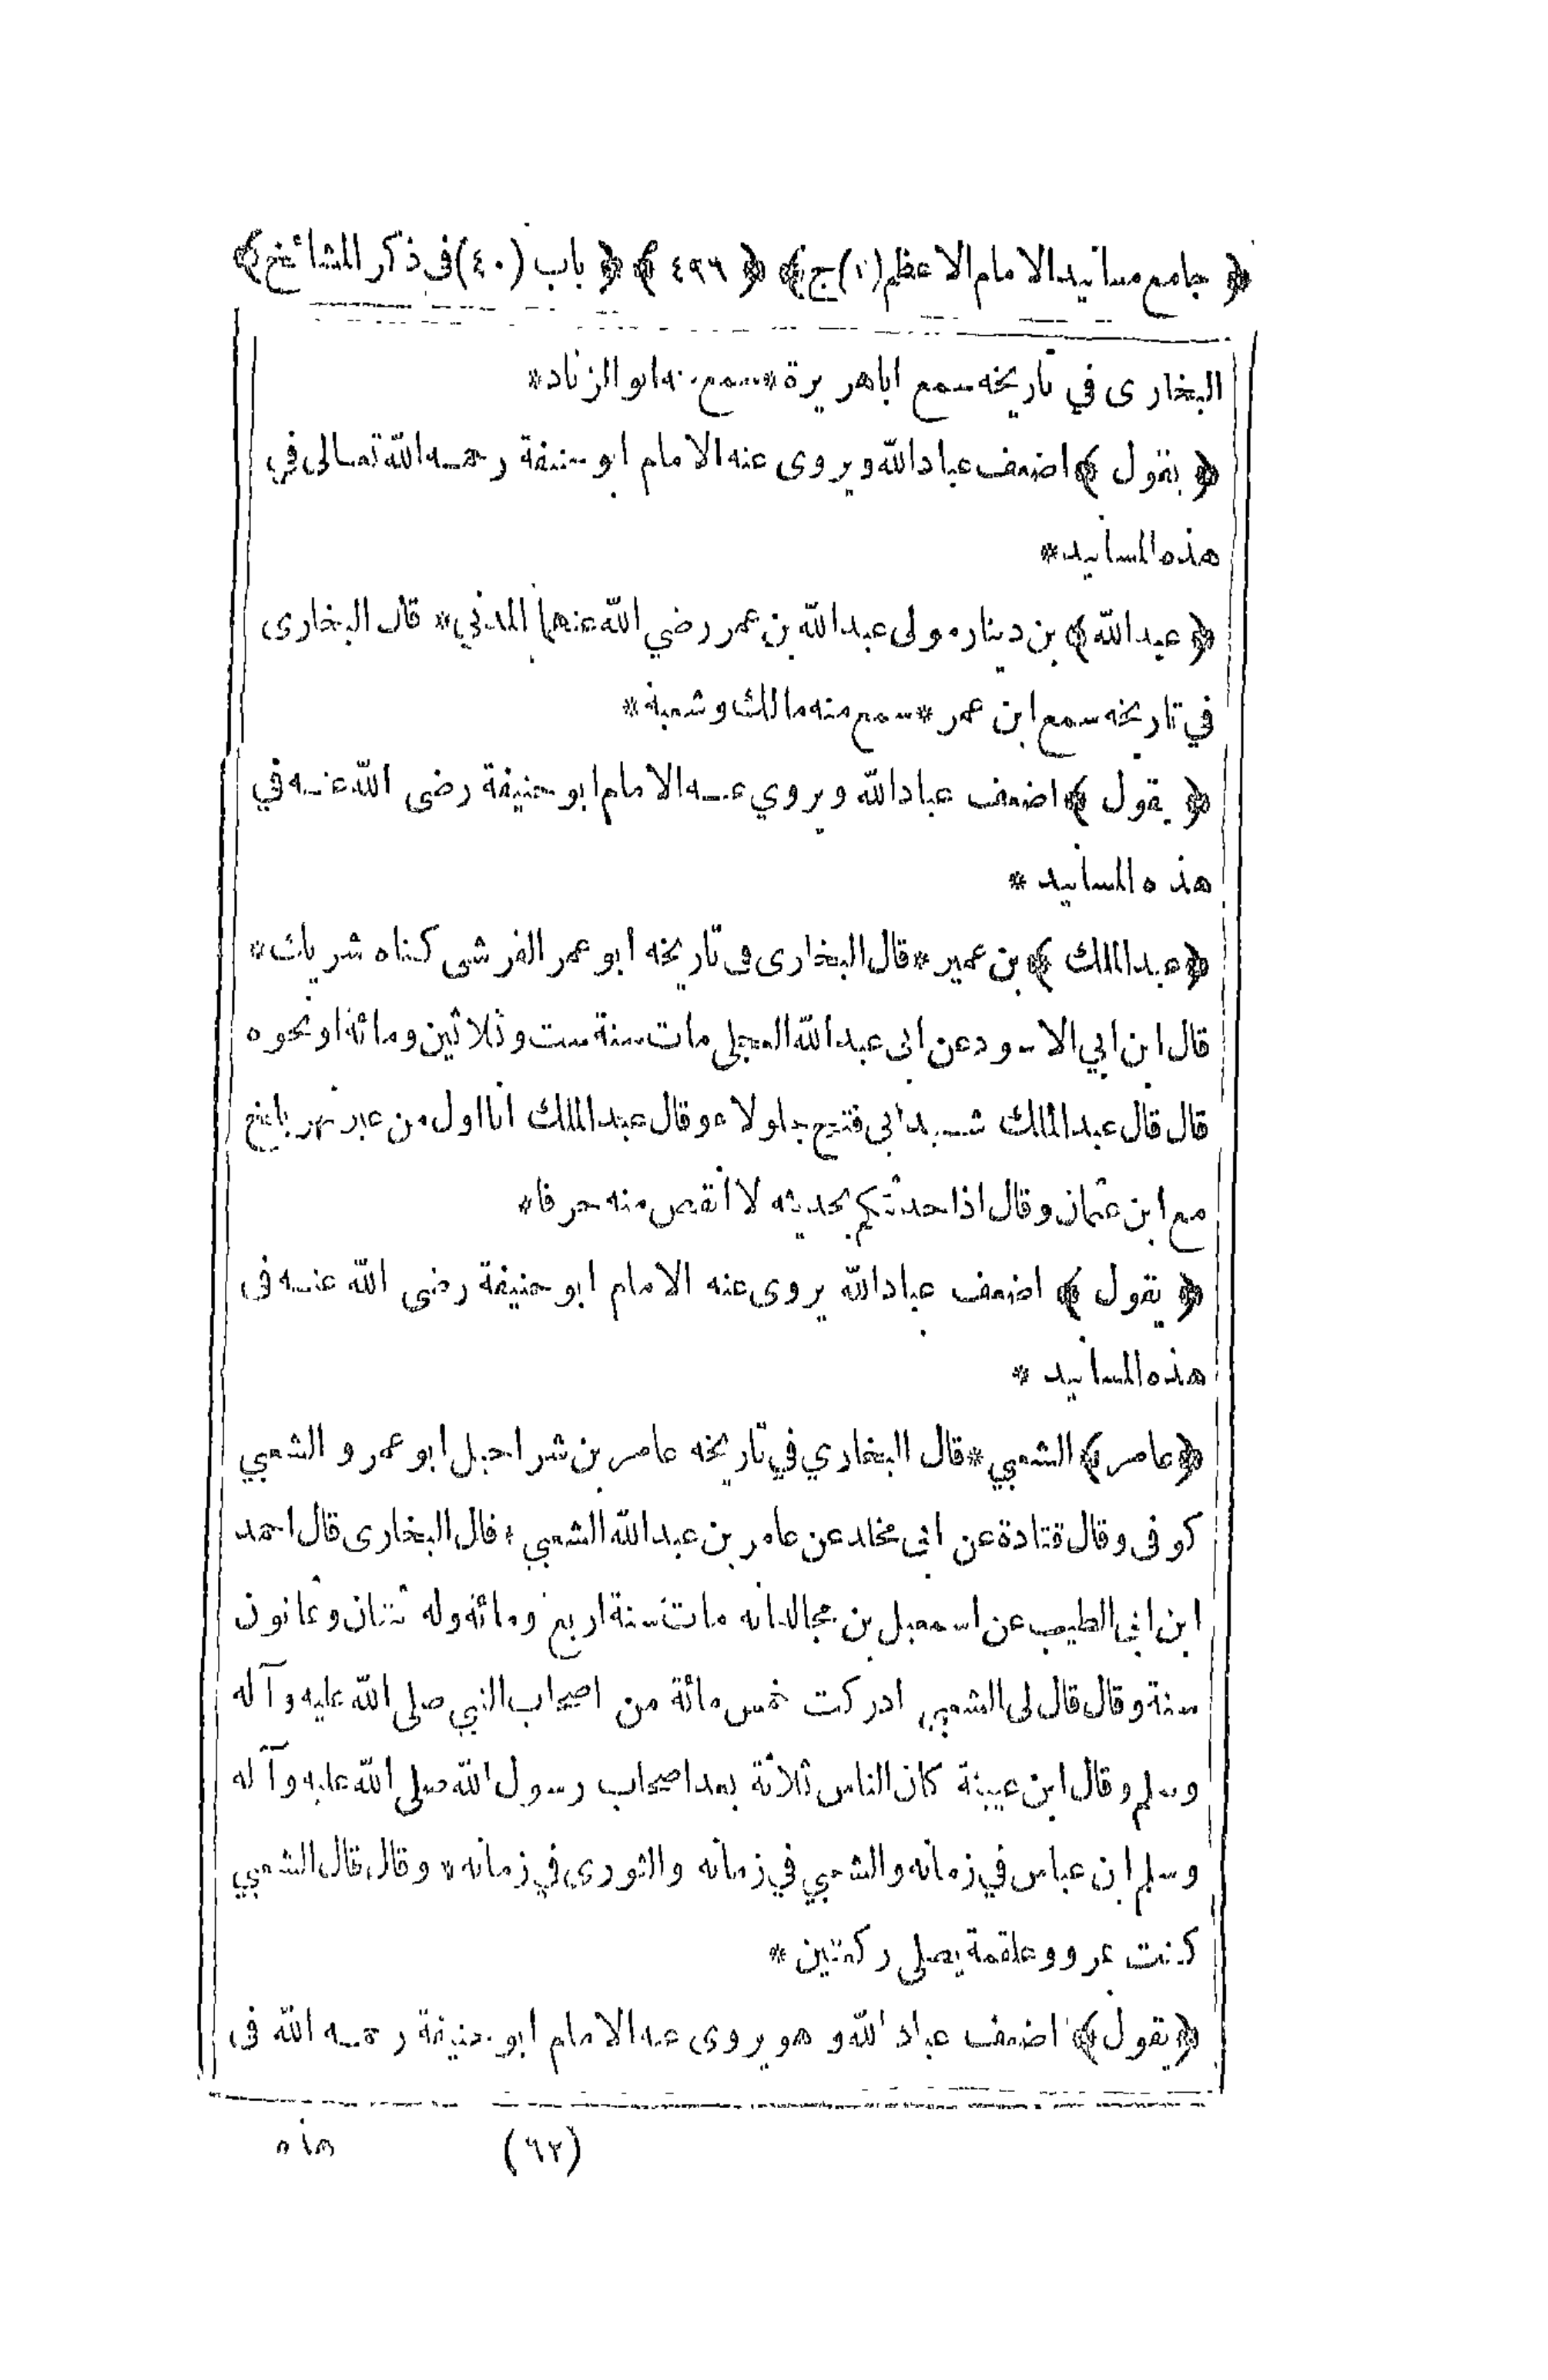 ﴿ جامع مسانيد الامام الاعظم (١) ج ﴾ ﴿ ٤٩٦ ﴾ ﴿ باب (٤٠) فى ذكر المشائخ ﴾
البخارى في تاريخه سمع اباهريرة * سمع منه ابو الزناد *
﴿ يقول ﴾ اضعف عباد الله ويروى عنه الامام ابو حنيفة رحمه الله تعالى في
هذه المسانيد *
﴿ عبد الله ﴾ بن دينار مولى عبد الله بن عمر رضي الله عنهما المدني * قال البخارى
في تاريخه سمع ابن عمر * سمع منه مالك وشعبة *
﴿ يقول ﴾ اضعف عباد الله ويروي عنه الامام ابو حنيفة رضى الله عنه في
هذه المسانيد *
﴿ عبد الملك ﴾ بن عمير * قال البخارى فى تاريخه ابو عمر القرشى كناه شريك *
قال ابن ابي الاسود عن ابى عبد الله العجلى مات سنة ست وثلاثين ومائة او نحوه
قال قال عبد الملك شهد ابى فتح جلولاء وقال عبد الملك انا اول من عبر نهر بلخ
مع ابن عثمان وقال اذا حدثتكم بحديثه لا انقص منه حرفا *
﴿ يقول ﴾ اضعف عباد الله يروى عنه الامام ابو حنيفة رضى الله عنه فى
هذه المسانيد *
﴿ عامر ﴾ الشعبي * قال البخاري في تاريخه عامر بن شراحيل ابو عمرو الشعبي
كوفى وقال قتادة عن ابى مخلد عن عامر بن عبد الله الشعبي * قال البخارى قال احمد
ابن ابى الطيب عن اسمعيل بن مجالد انه مات سنة اربع ومائة وله ثنتان وثمانون
سنة وقال قال لى الشعبي ادركت خمس مائة من اصحاب النبي صلى الله عليه وآله
وسلم وقال ابن عيينة كان الناس ثلاثة بعد اصحاب رسول الله صلى الله عليه وآله
وسلم ابن عباس في زمانه والشعبي في زمانه والثورى في زمانه * وقال قال الشعبي
كنت وعلقمة يصلى ركعتين *
﴿ يقول ﴾ اضعف عباد الله وهو يروى عنه الامام ابو حنيفة رحمه الله فى
(٦٢) هذه